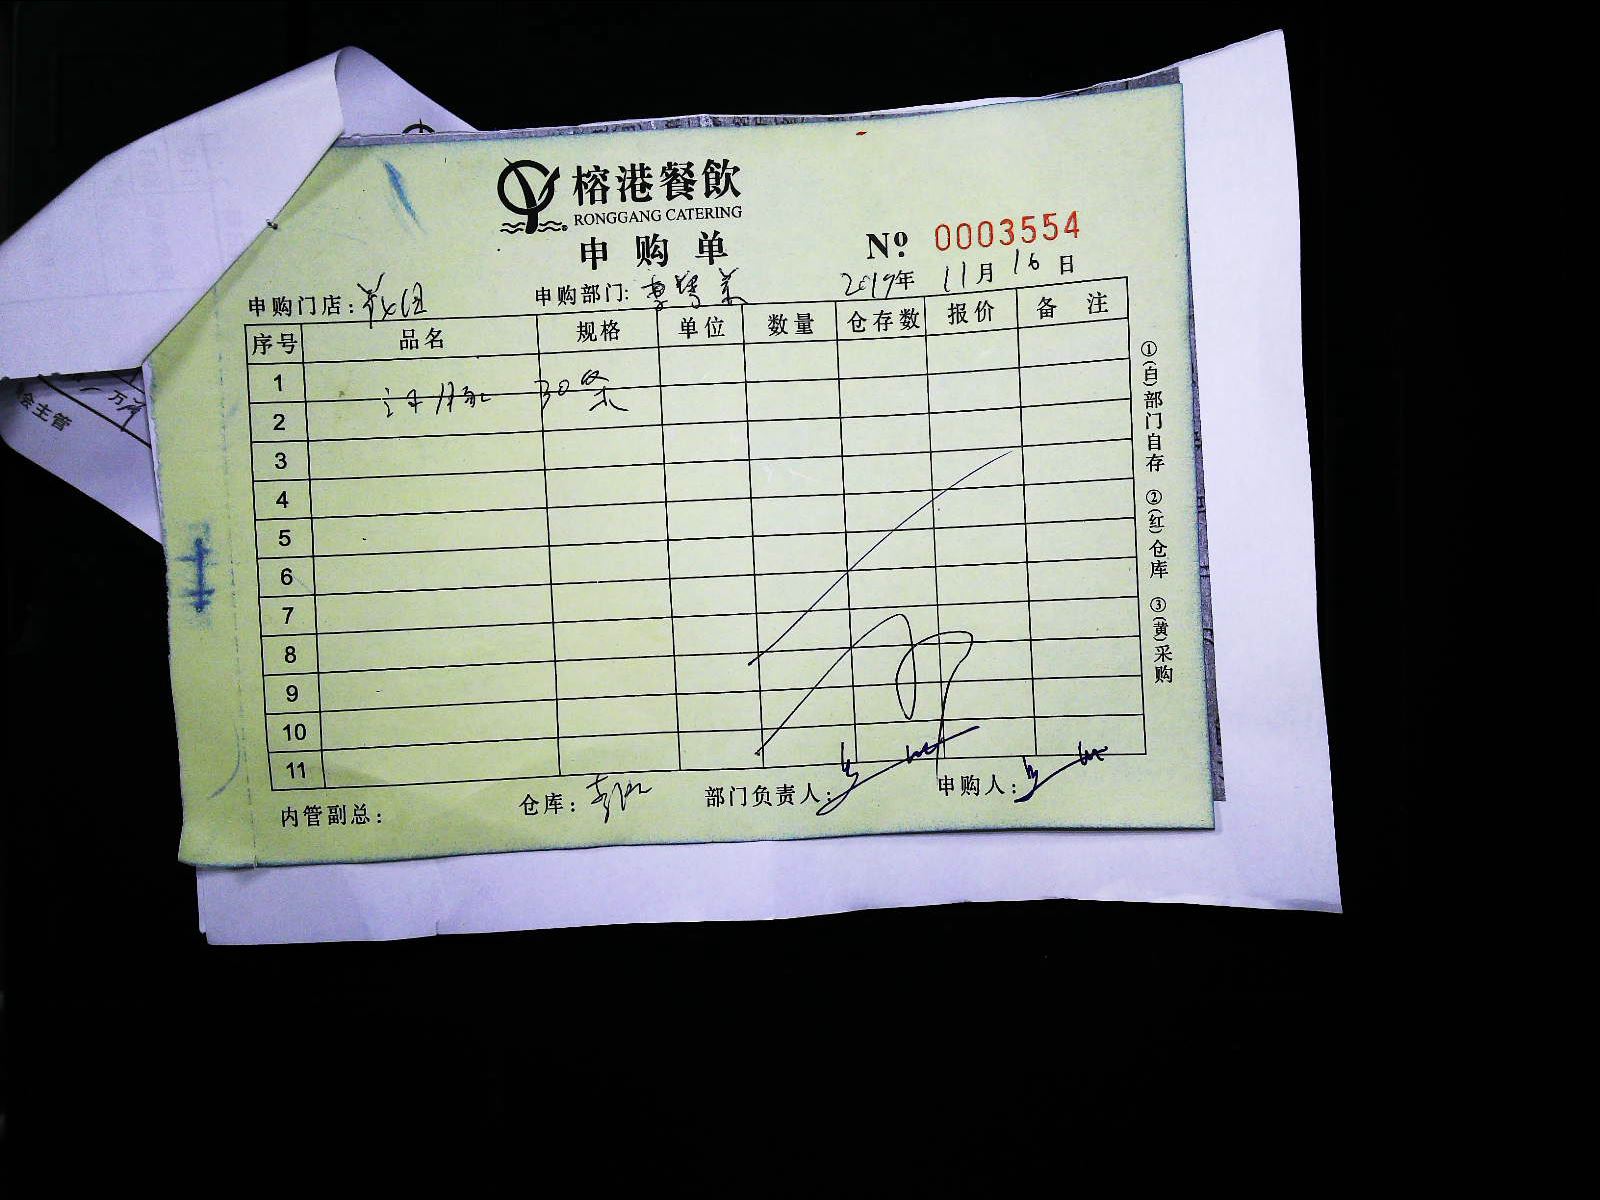 榕港餐飲
RONGGANG CATERING
申购单
№ 0003554
申购门店： 申购部门: 2019年 11月 16日
序号 品名 规格 单位 数量 仓存数 报价 备注
1
30条
2
3
4
5
6
7
8
9
10
11
内管副总： 仓库： 部门负责人： 申购人：
①(白)部门自存 ②(红)仓库 ③(黄)采购
会主管